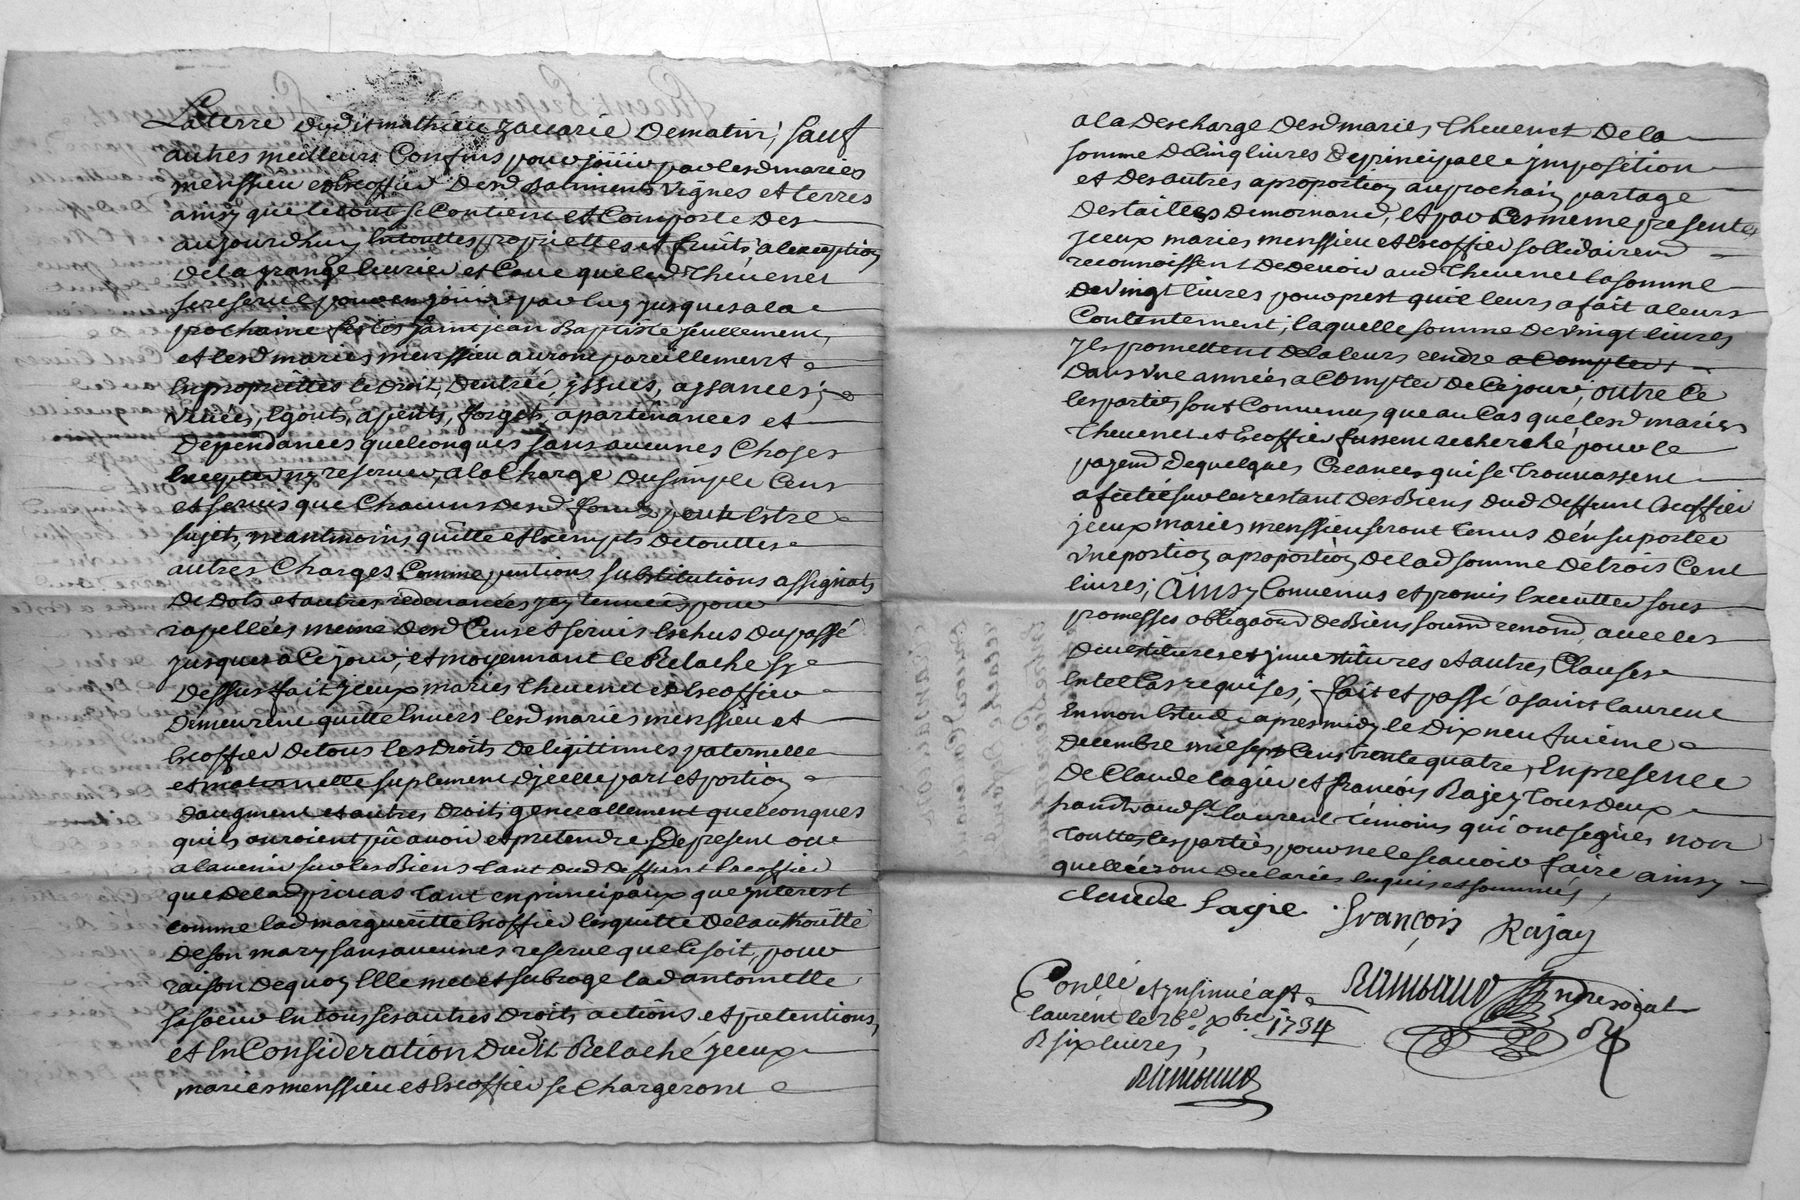 La terre dudit mathieu zacarie dematin, sauf
autres meilleurs Confins pour joüir par lesd maries
menssieu et Escoffier desd Batiments vignes et terres
ainsy que le tout se Contient et Comporte des
aujourdhuy En touttes propriettes et fruits a lexception
de la grange Ecurier et Cave que led Thevenet
se reserve pour en joüir par luy jusques a la
prochaine festes saint jean Baptiste seullement,
et lesd maries menssieu auront pareillement
En proprietes le droit, dentrée, issues, aysances,
veües, Egouts, apents, forgets, apartenances et
dependances quelconques sans aucunes Choses
Excepter ny reserver, a la Charge du simple Cens
et servis que Chacuns desd fonds peut Estre
sujets, neantmoins, quitte et Exempts de touttes
autres Charges Comme pentions substitutions assignats
de dots et autres redevances jcy tenues pour
rapellées meme desd Cens et servis Eschus du passé
jusques a Ce jour; et moyennant le Relache sy
dessus fait jceux maries thevenet et Escoffier
demeurent quitte Envers lesd maries menssieu et
Escoffier de tous les droits de legittimes paternelle
et maternelle suplement djcelle part et portion
daugment et autres droits generallement quelconques
quils auroient pû avoir et pretendre de present ou
a lavenir sur les Biens tant dud deffunt Escoffier
que de lad pivas tant en principaux que jnterest
comme lad margueritte Escoffier les quitte de lauthoritté
de son mary sans aucunes reserve que Ce soit, pour
raison de quoy Elle met et subroge lad antoinette
sa soeur En tous ses autres droits actions et pretentions,
et En Consideration dudit Relaché jceux
maries menssieu et Escoffier se Chargeront
a la descharge desd maries Thevenet de la
somme de Cinq livres de principalle jmposition
et des autres a proportion au prochain partage
des tailles de mornand, et par Ces meme presentes
jceux maries menssieu et Escoffier sollidairem
reconnoissent de devoir aud thevenet la somme
de vingt livres pour prest quil leurs a fait a leurs
Contentement; laquelle somme de vingt livres
jls promettent de la leurs rendre a Compter
dans vne année a Compter de Ce jour, outre Ce
les parties sont Convenus, que au Cas que lesd mariés
Thevenet et Escoffier fussent recherché pour le
payem de quelques Creances qui se trouvassent
afectée sur les restant des Biens dud deffunt Escoffier
jceux maries menssieu seront tenus den suporter
vne portion a proportion de lad somme de trois Cent
livres; Ainsy Convenus et promis Executter sous
promesses obligaons de Biens soumd renond avec les
devestitures et jnvestitures et autres Clauses
En tel Cas requises; fait et passé a saint laurent
En mon Estude apres midy le dix neufvieme
decembre mil sept Cens trente quatre, En presence
de Claude lagier et françois Rajey tous deux
hands aud st laurent temoins qui ont signés non
touttes les parties pour ne le scavoir faire ainsy
quelles ont declarées Enquis et sommés,
claude Lagie françois Rajay
Conllé et jnsinué a st
laurent le 26e xbre 1734
R six livres,
Raimbaud
Raimbaud nore roial